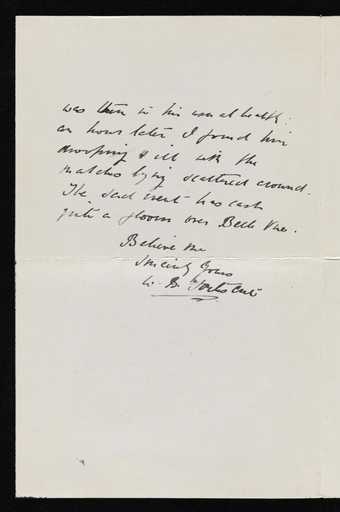 was then in his usual health:
an hour later I found him
drooping & ill with the
matches lying scattered around.
The sad event has cast
quite a gloom over Belle Vue.
Believe me
Sincerely Yours
W. B.